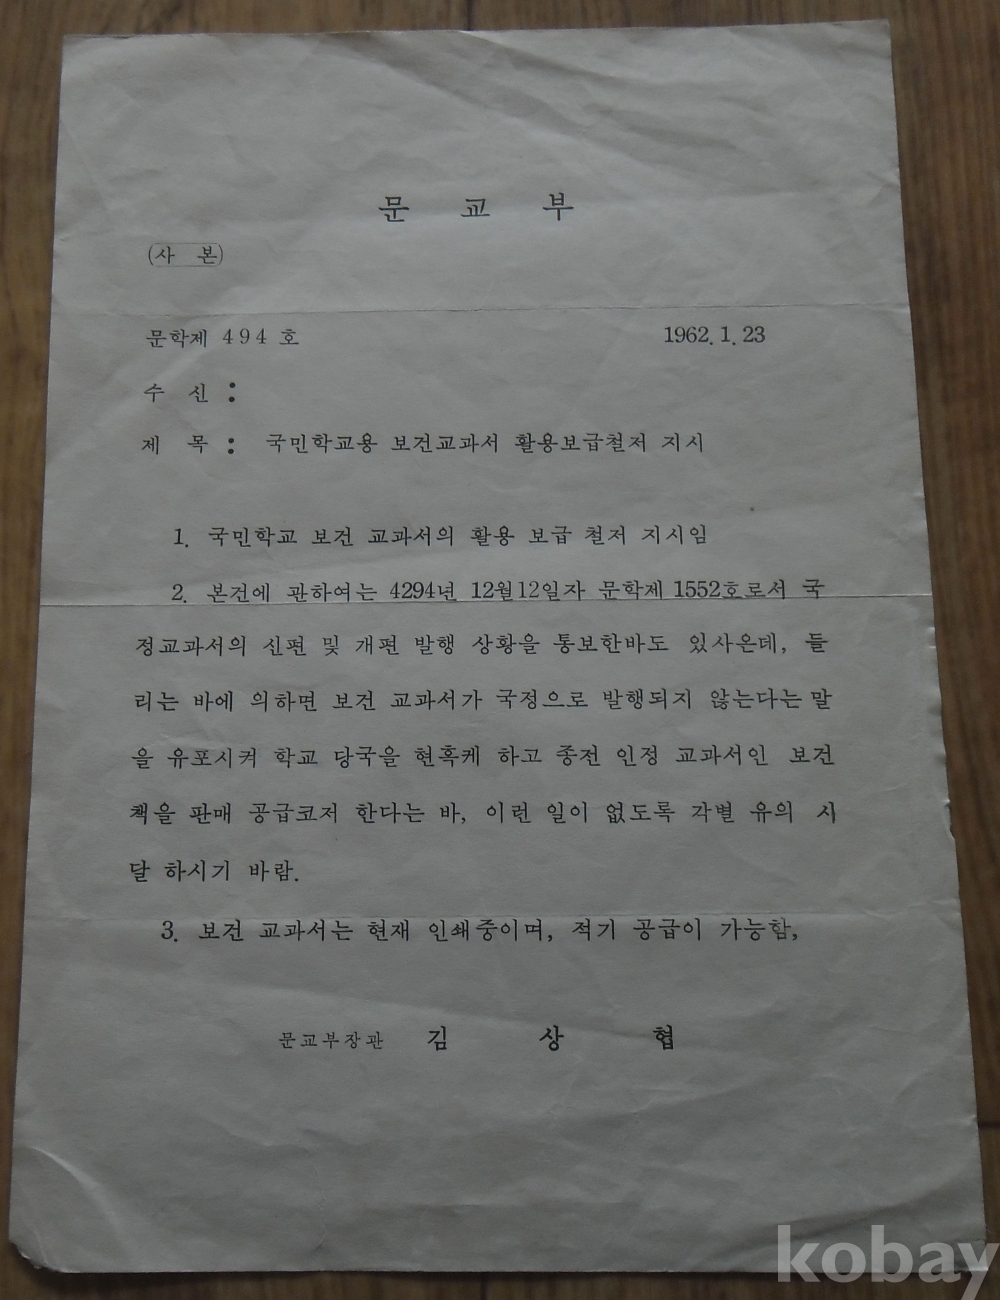 문 교 부
(사 본)
문학제 494 호 1962. 1. 23
수 신 :
제 목 : 국민학교용 보건교과서 활용보급철저 지시
1. 국민학교 보건 교과서의 활용 보급 철저 지시임
2. 본건에 관하여는 4294년 12월12일자 문학제 1552호로서 국
정교과서의 신편 및 개편 발행 상황을 통보한바도 있사온데, 들
리는 바에 의하면 보건 교과서가 국정으로 발행되지 않는다는 말
을 유포시켜 학교 당국을 현혹케 하고 종전 인정 교과서인 보건
책을 판매 공급코저 한다는 바, 이런 일이 없도록 각별 유의 시
달 하시기 바람.
3. 보건 교과서는 현재 인쇄중이며, 적기 공급이 가능함,
문교부장관 김 상 협
kobay